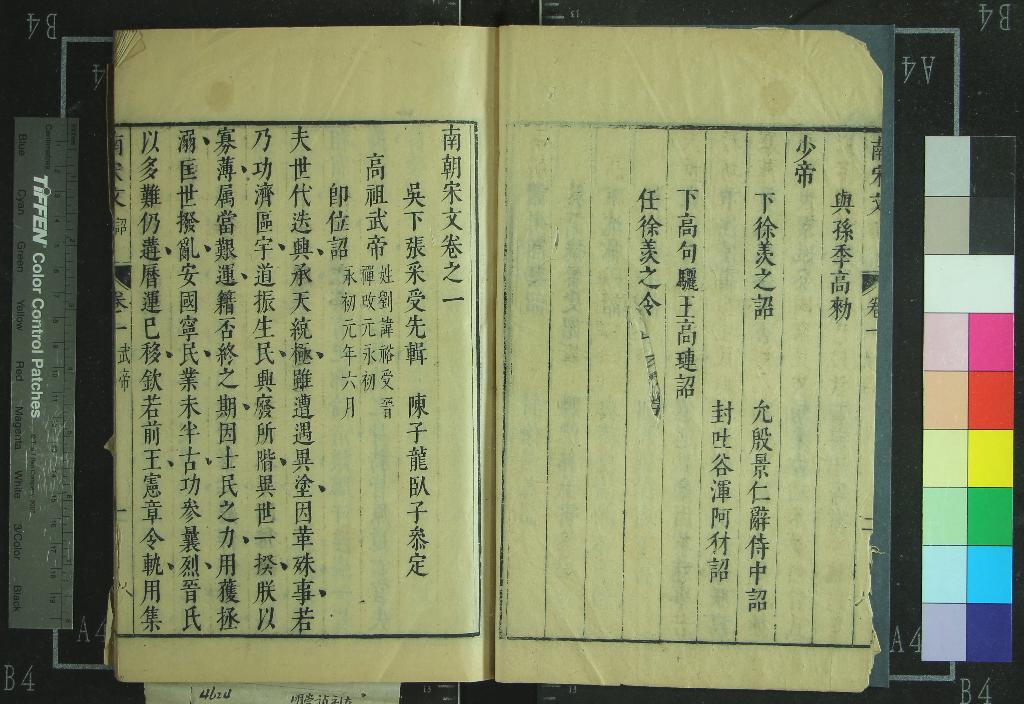 與孫季高勑
少帝
下徐羨之詔 允殷景仁辭侍中詔
封吐谷渾阿犲詔
下高句驪王高璉詔
任徐羨之令
南朝宋文卷之一
吳下張采受先輯 陳子龍臥子叅定
高祖武帝 姓劉諱裕受晉
禪改元永初
即位詔 永初元年六月
夫世代迭興承天統極雖遭遇異塗因革殊事若
乃功濟區宇道振生民興廢所階異世一揆朕以
寡薄属當艱運籍否終之期因士民之力用獲拯
溺匡世撥亂安國寧民業未半古功參曩烈晉氏
以多難仍遘曆運已移欽若前王憲章令軌用集
卷一 武帝
TIFFEN Color Control Patches
Blue Cyan Green Yellow Red Magenta White 3/Color Black
Centimetres
B4
B4
A4
A4
A4
B4
B4
4624